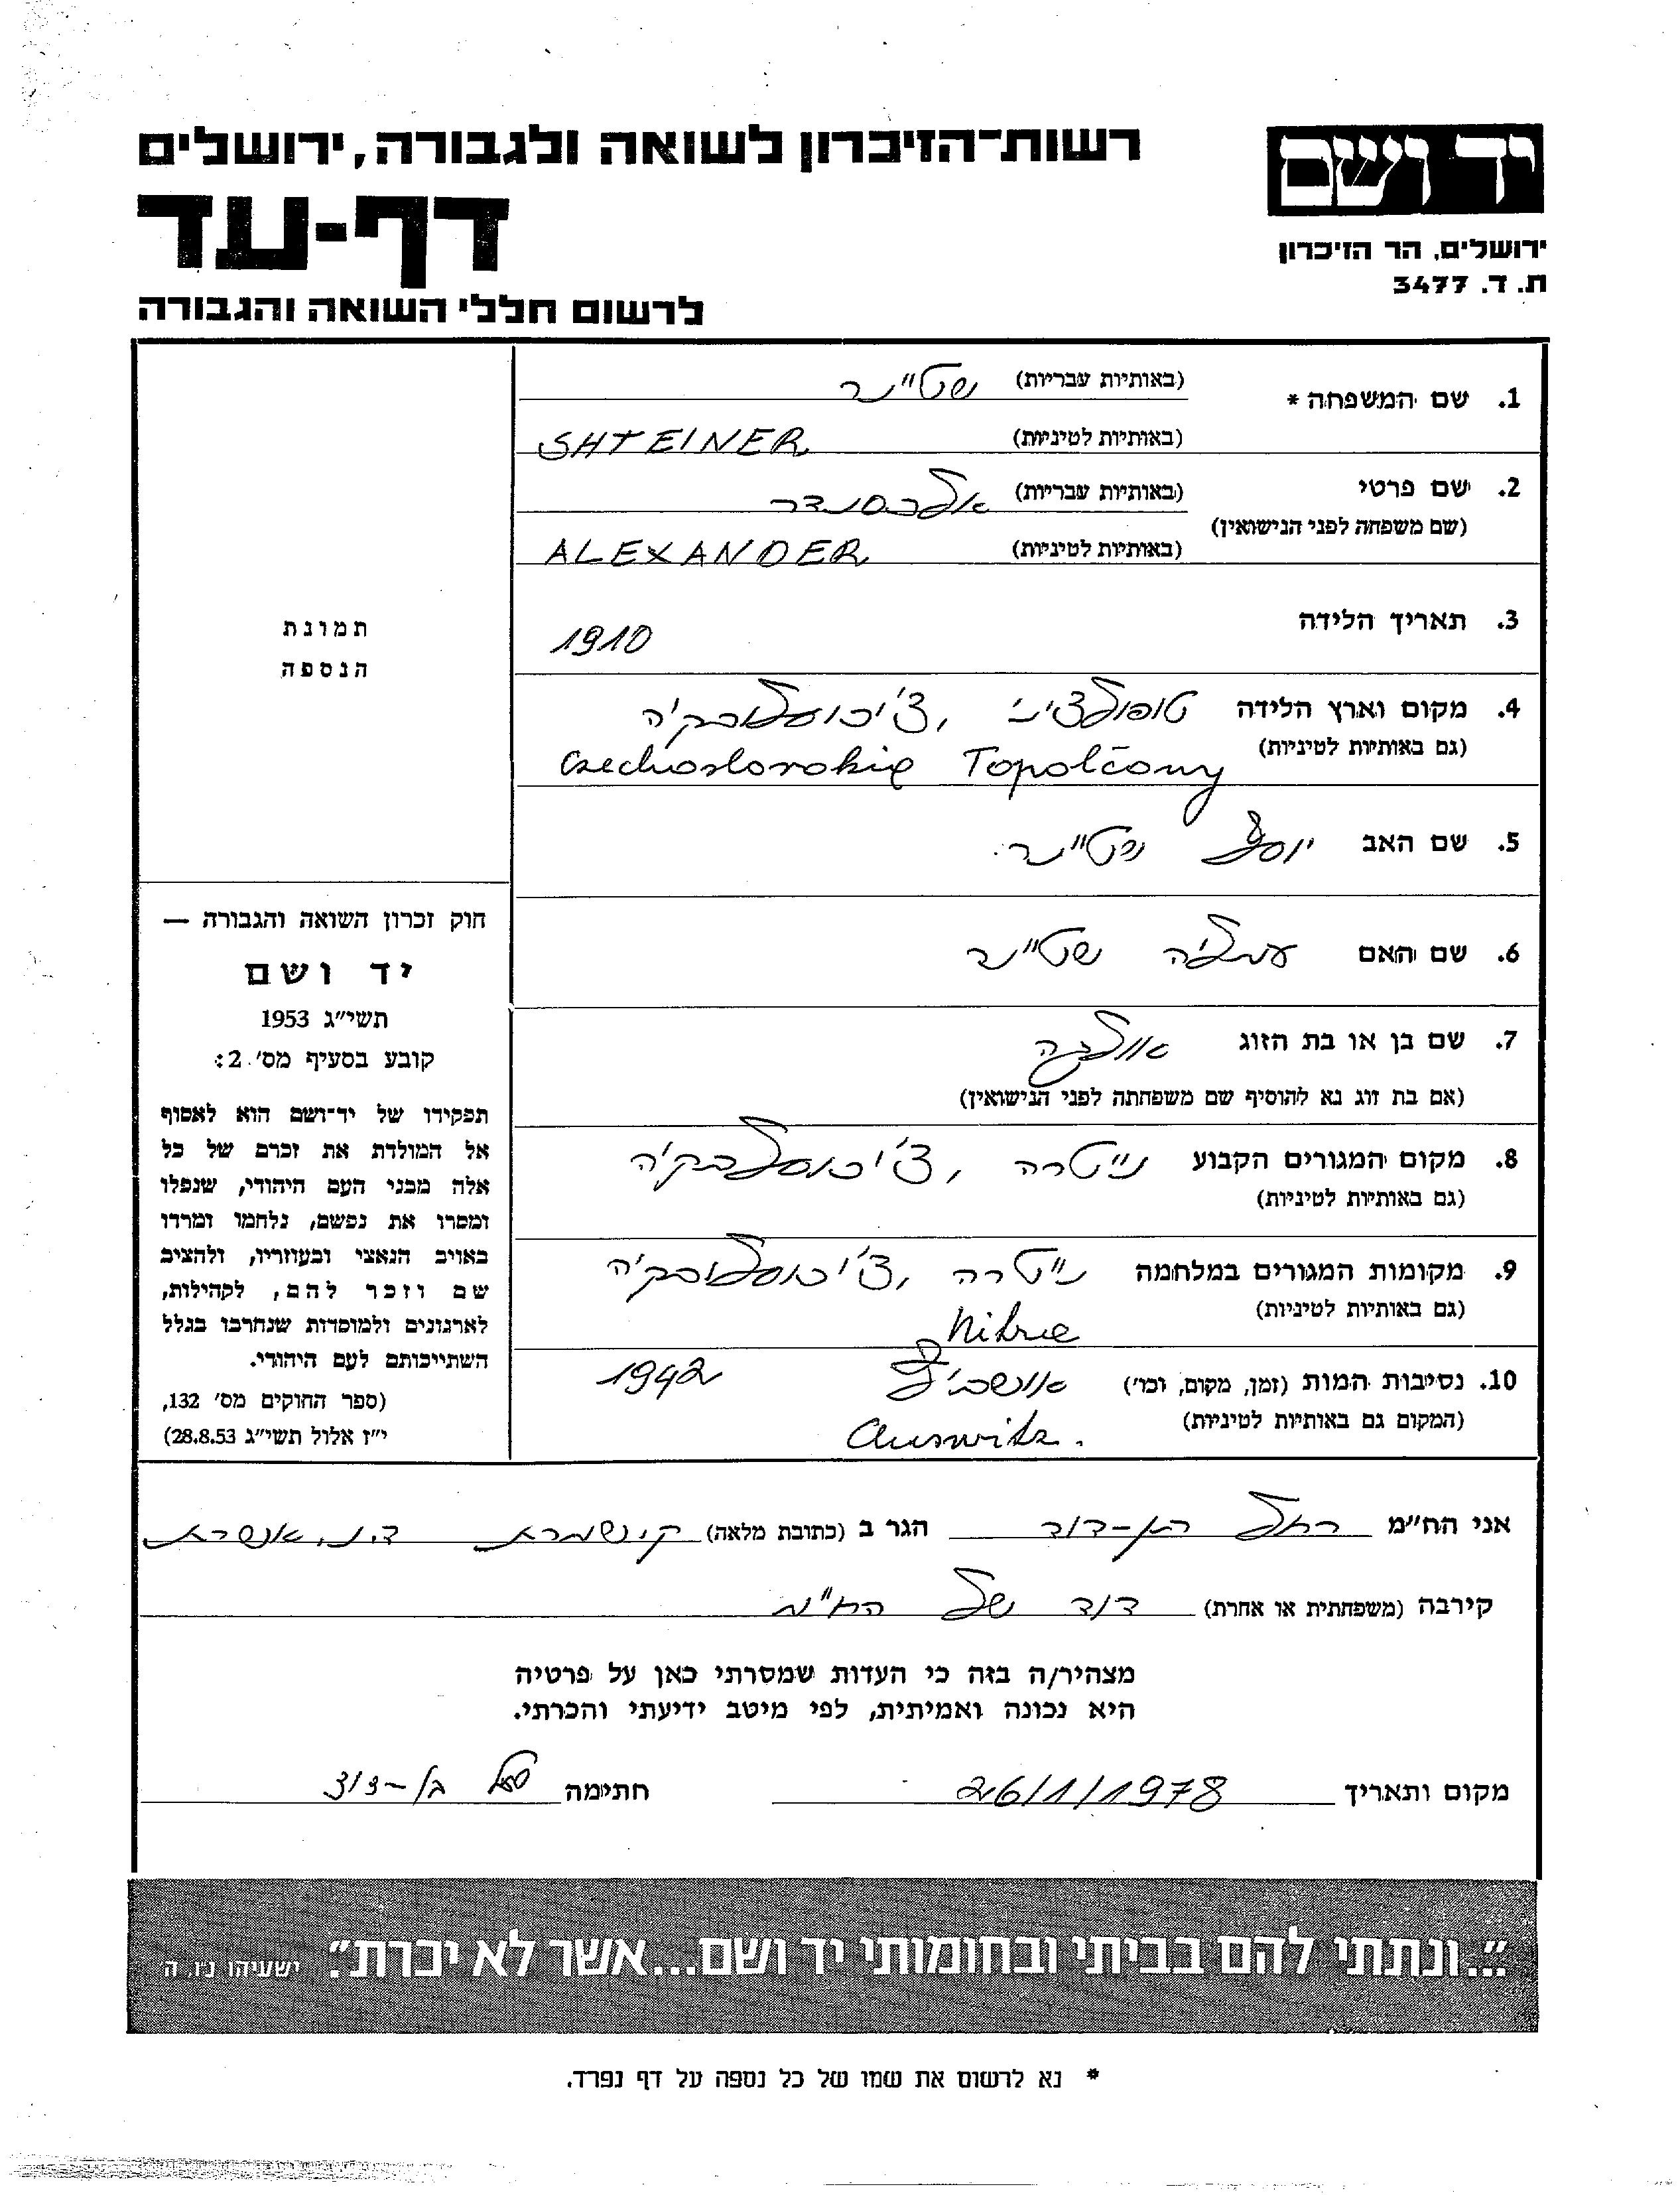 יד ושם
ירושלים, הר הזיכרון
ת. ד. 3477
רשות־הזיכרון לשואה ולגבורה, ירושלים
דף-עד
לרשום חללי השואה והגבורה
1. שם המשפחה * (באותיות עבריות) שטיינר
(באותיות לטיניות) SHTEINER
2. שם פרטי (באותיות עבריות) אלכסנדר
(שם משפחה לפני הנישואין) (באותיות לטיניות) ALEXANDER
3. תאריך הלידה 1910
4. מקום וארץ הלידה טופולציני, צ'יכוסלובקיה
(גם באותיות לטיניות) Topolčany Czechoslovakie
5. שם האב יוסף שטיינר
6. שם האם עמליה שטיינר
7. שם בן או בת הזוג אולגה
(אם בת זוג נא להוסיף שם משפחתה לפני הנישואין)
8. מקום המגורים הקבוע נייטרה, צ'יכוסלובקיה
(גם באותיות לטיניות)
9. מקומות המגורים במלחמה נייטרה, צ'יכוסלובקיה
(גם באותיות לטיניות) Nitrie
10. נסיבות המות (זמן, מקום, וכו') אושביץ 1942
(המקום גם באותיות לטיניות) Auswitz.
תמונת
הנספה
חוק זכרון השואה והגבורה —
יד ושם
תשי"ג 1953
קובע בסעיף מס' 2:
תפקידו של יד־ושם הוא לאסוף
אל המולדת את זכרם של כל
אלה מבני העם היהודי, שנפלו
ומסרו את נפשם, נלחמו ומרדו
באויב הנאצי ובעוזריו, ולהציב
שם וזכר להם, לקהילות,
לארגונים ולמוסדות שנחרבו בגלל
השתייכותם לעם היהודי.
(ספר החוקים מס' 132,
י"ז אלול תשי"ג 28.8.53)
אני הח"מ רחל בן-דוד הגר ב (כתובת מלאה) ד.נ. אשרת
קירבה (משפחתית או אחרת) דוד של הח"מ
מצהיר/ה בזה כי העדות שמסרתי כאן על פרטיה
היא נכונה ואמיתית, לפי מיטב ידיעתי והכרתי.
מקום ותאריך 26/1/1978 חתימה רחל בן-דוד
"...ונתתי להם בביתי ובחומותי יד ושם...אשר לא יכרת". ישעיהו נ"ו, ה
* נא לרשום את שמו של כל נספה על דף נפרד.